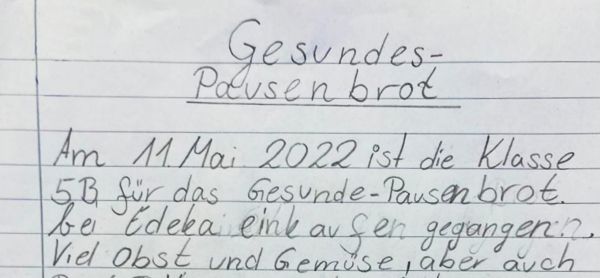 Gesundes-
Pausenbrot
Am 11 Mai 2022 ist die Klasse
5B für das Gesunde-Pausenbrot.
bei Edeka einkaufen gegangen.
Viel Obst und Gemüse, aber auch